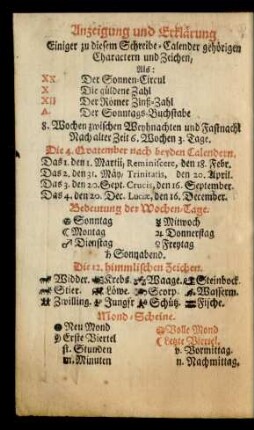 Anzeigung und Erklärung
Einiger zu diesem Schreibe-Calender gehörigen
Charactern und Zeichen,
Als:
XX. Der Sonnen-Circul
X Die güldene Zahl
XII Der Römer Zinß-Zahl
A. Der Sonntags-Buchstabe
8. Wochen zwischen Weyhnachten und Fastnacht
Nach alter Zeit 6. Wochen 3. Tage.
Die 4. Quatember nach beyden Calendern.
Das 1. den 1. Martii, Reminiscere, den 18. Febr.
Das 2. den 31. May, Trinitatis, den 20. April.
Das 3. den 20. Sept. Crucis, den 16. September.
Das 4. den 20. Dec. Luciæ, den 16. December.
Bedeutung der Wochen-Tage.
☉ Sonntag ☿ Mitwoch
☾ Montag ♃ Donnerstag
♂ Dienstag ♀ Freytag
♄ Sonnabend.
Die 12. himmlischen Zeichen.
Widder. Krebs. Waage. Steinbock.
Stier. Löwe. Scorp. Wasserm.
Zwilling. Jungfr. Schütz. Fische.
Mond-Scheine.
Neu Mond Volle Mond
Erste Viertel Letzte Viertel.
st. Stunden v. Vormittag.
m. Minuten n. Nachmittag.